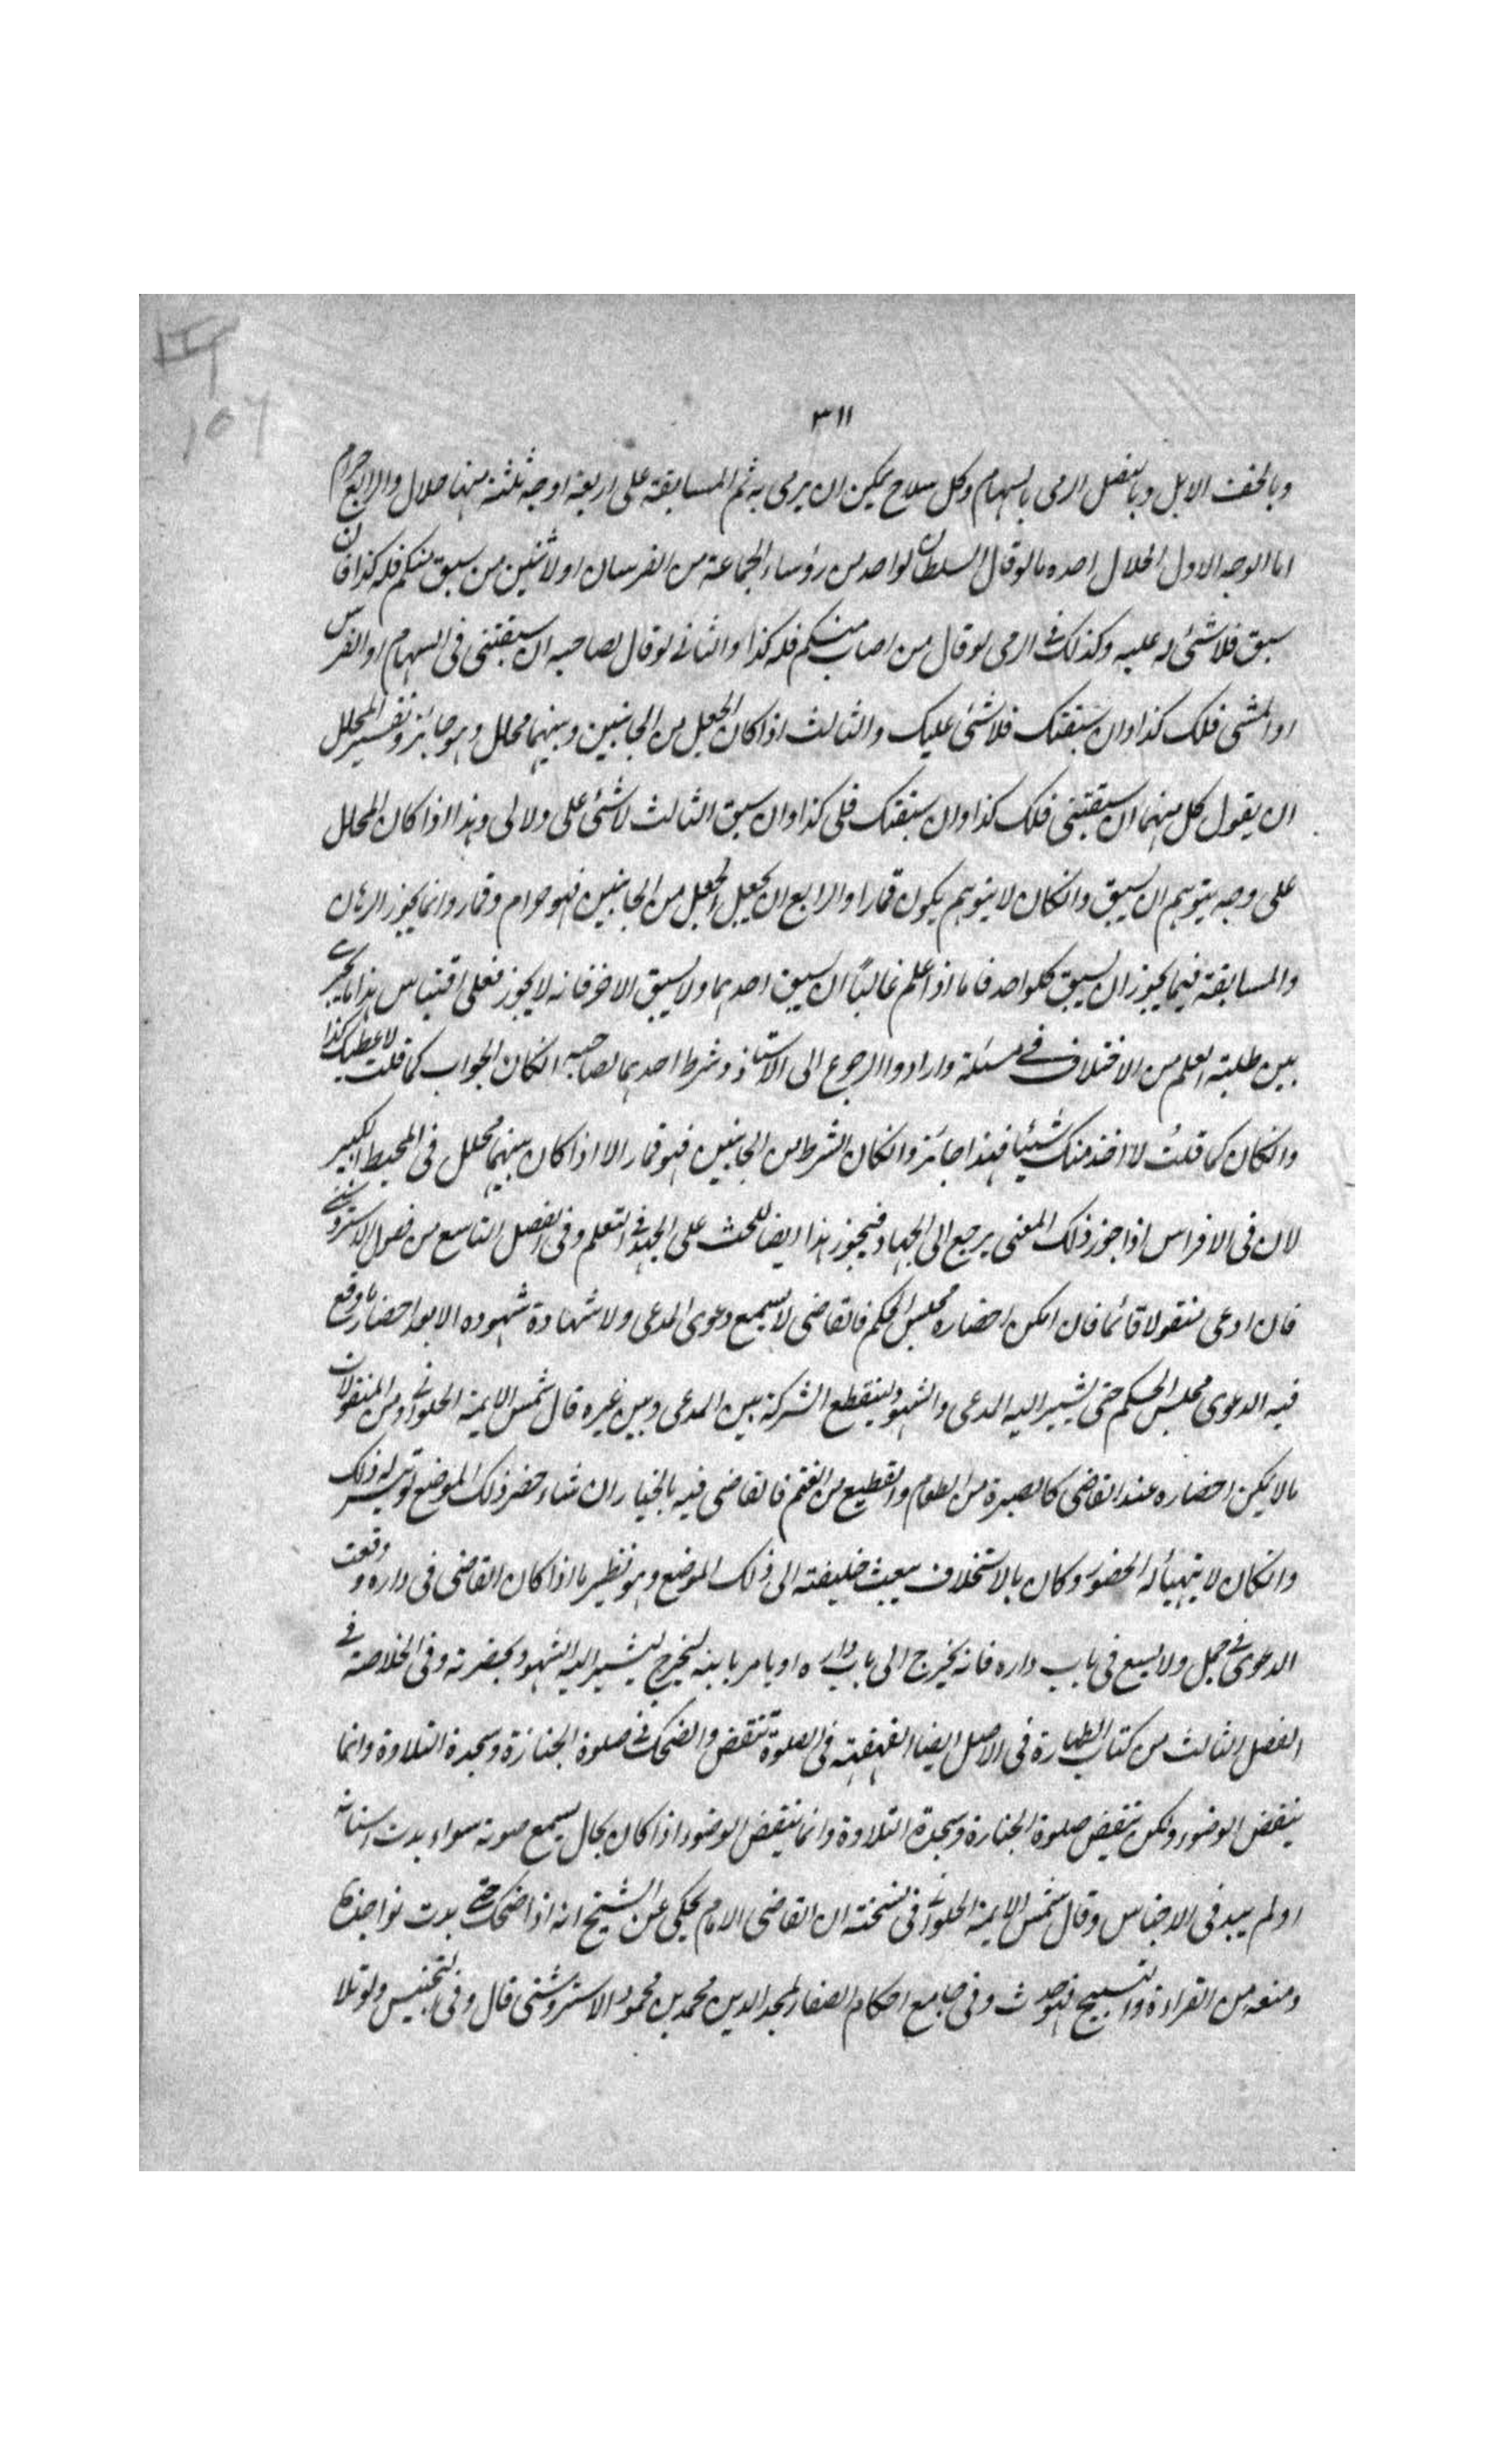 ٣١١
وبالخف الابل وبالنصل الرمى بالسهام وكل سلاح يمكن ان يرمى به ثم المسابقة على اربعة اوجه ثلثة منها حلال والرابع حرام
اما الوجه الاول الحلال احده ما لو قال السلطان لواحد من رؤساء الجماعة من الفرسان او لاثنين من سبق منكم فله كذا فان
سبق فلا شئ له عليه وكذلك فى الرمى لو قال من اصاب منكم فله كذا والثانى لو قال لصاحبه ان سبقتنى فى السهام او الفرس
او المشى فلك كذا وان سبقتك فلا شئ عليك والثالث اذا كان الجعل من الجانبين وبينهما محلل وهو جائز وتفسير المحلل
ان يقول كل منهما ان سبقتنى فلك كذا وان سبقتك فلى كذا وان سبق الثالث لا شئ على ولا لى وهذا اذا كان المحلل
على وجه يتوهم ان يسبق وانكان لا يتوهم يكون قمارا والرابع ان يجعل الجعل من الجانبين فهو حرام وقمار وانما يجوز الرهان
والمسابقة فيما يجوز ان يسبق كلواحد فاما اذا علم غالباً ان يسبق احدهما ولا يسبق الاخر فانه لا يجوز فعلى اقتباس هذا ما يجرى
بين طلبة العلم من الاختلاف فى مسئلة وارادوا الرجوع الى الاستاذ وشرط احدهما لصاحبه انكان الجواب كما قلت لاعطيك كذا
وانكان كما قلتُ لا اخذ منك شيئا فهذا جائز وانكان الشرط من الجانبين فهو قمار الا اذا كان بينهما محلل فى المحيط الكبير
لان فى الافراس اذا جوز ذلك المعنى يرجع الى الجهاد فيجوز هذا ايضا للحث على الجهد فى التعلم وفى الفصل التاسع من فصول الاستروشنى
فان ادعى منقولا قائما فان امكن احضاره مجلس الحكم فالقاضى لا يسمع دعوى المدعى ولا شهادة شهوده الا بعد احضاره وقع
فيه الدعوى مجلس الحكم حتى يشير اليه المدعى والشهود لينقطع الشركة بين المدعى وبين غيره قال شمس الايمة الحلوانى ومن المنقولات
ما لا يمكن احضاره عند القاضى كالصبرة من الطعام والقطيع من الغنم فالقاضى فيه بالخيار ان شاء حضر ذلك الموضع لو تيسر له ذلك
وانكان لا يتهيأ له الحضور وكان بالاستخلاف يبعث خليفته الى ذلك الموضع وهو نظير ما اذا كان القاضى فى داره و وقعت
الدعوى فى جمل ولا يسع فى باب داره فانه يخرج الى باب داره او يامر بابنه ليخرج ليشير اليه الشهود بحضرته وفى الخلاصة فى
الفصل الثالث من كتاب الطهارة فى الاصل ايضا القهقهة فى الصلوة تنقض والضحك فى صلوة الجنازة وسجدة التلاوة وانما
ينقض الوضوء ولكن تنقض صلوة الجنازة وسجدة التلاوة وانما ينقض الوضوء اذا كان بحال يسمع صوته سواء بدت اسنانه
او لم يبد فى الاجناس وقال شمس الايمة الحلوانى فى نسخته ان القاضى الامام يحكى عن الشيخ انه اذا ضحك حتى بدت نواجذه
ومنعه من القراءة والتسبيح فهو حدث وفى جامع احكام الصغار لمجد الدين محمد بن محمود الاستروشنى قال وفى التجنيس ولو تلا